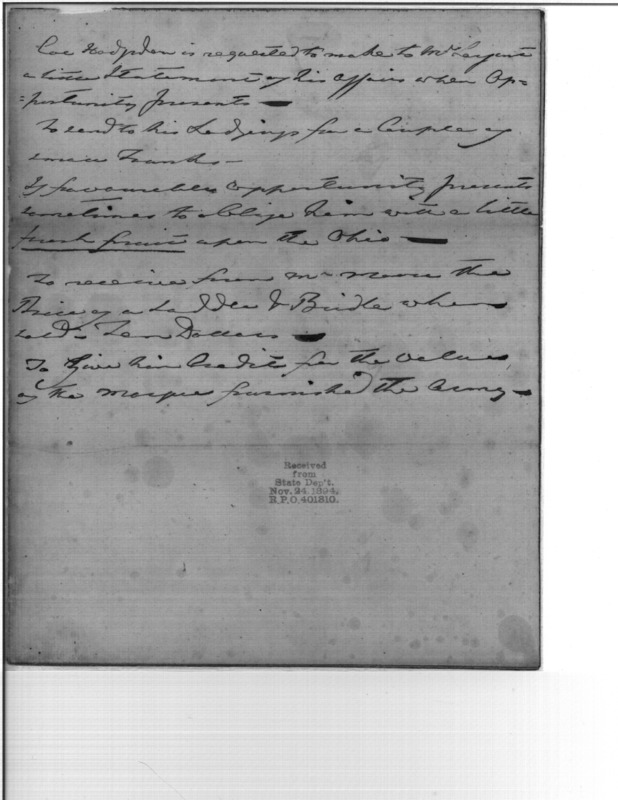 Col Hodgdon is requested to make to Mr Sargent
a little Statement of his affairs when Op=
=portunity presents —
To send to his Lodgings for a Couple of
small Trunks —
If favourable opportunity presents
sometimes to oblige him with a little
fresh fruit upon the Ohio —
To receive from Mr the
Price of a Saddle & Bridle when
sold – Ten Dollars —
To Give him Credit for the Value
of the Marque furnished the Army —
Received
from
State Dep't.
Nov. 24 1894.
R.P.O. 401810.